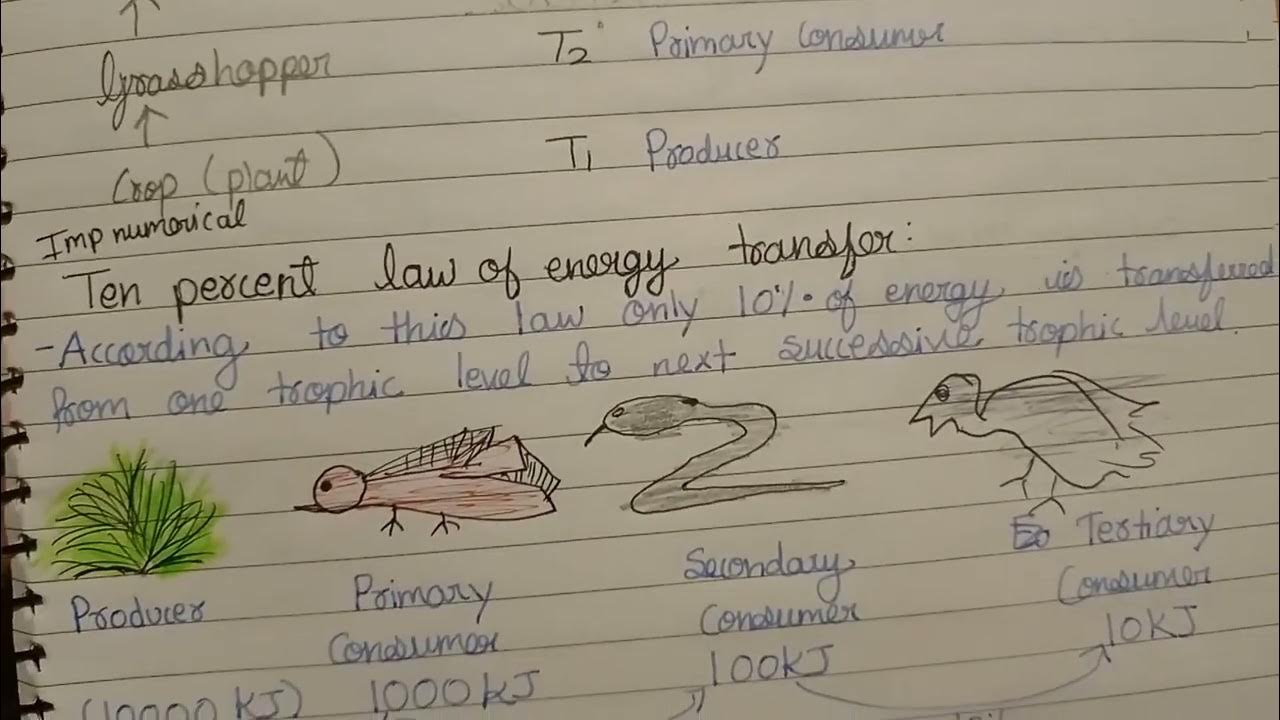 Grasshopper T2 Primary Consumer
Crop (plant) T1 Producer
Imp numerical
Ten percent law of energy transfor:
- According to this law only 10% of energy is transferred
from one trophic level to next successive trophic level.
Producer
Primary
Consumer
Secondary
Consumer
Tertiary
Consumer
(10000 KJ) 1000 KJ 100KJ 10KJ